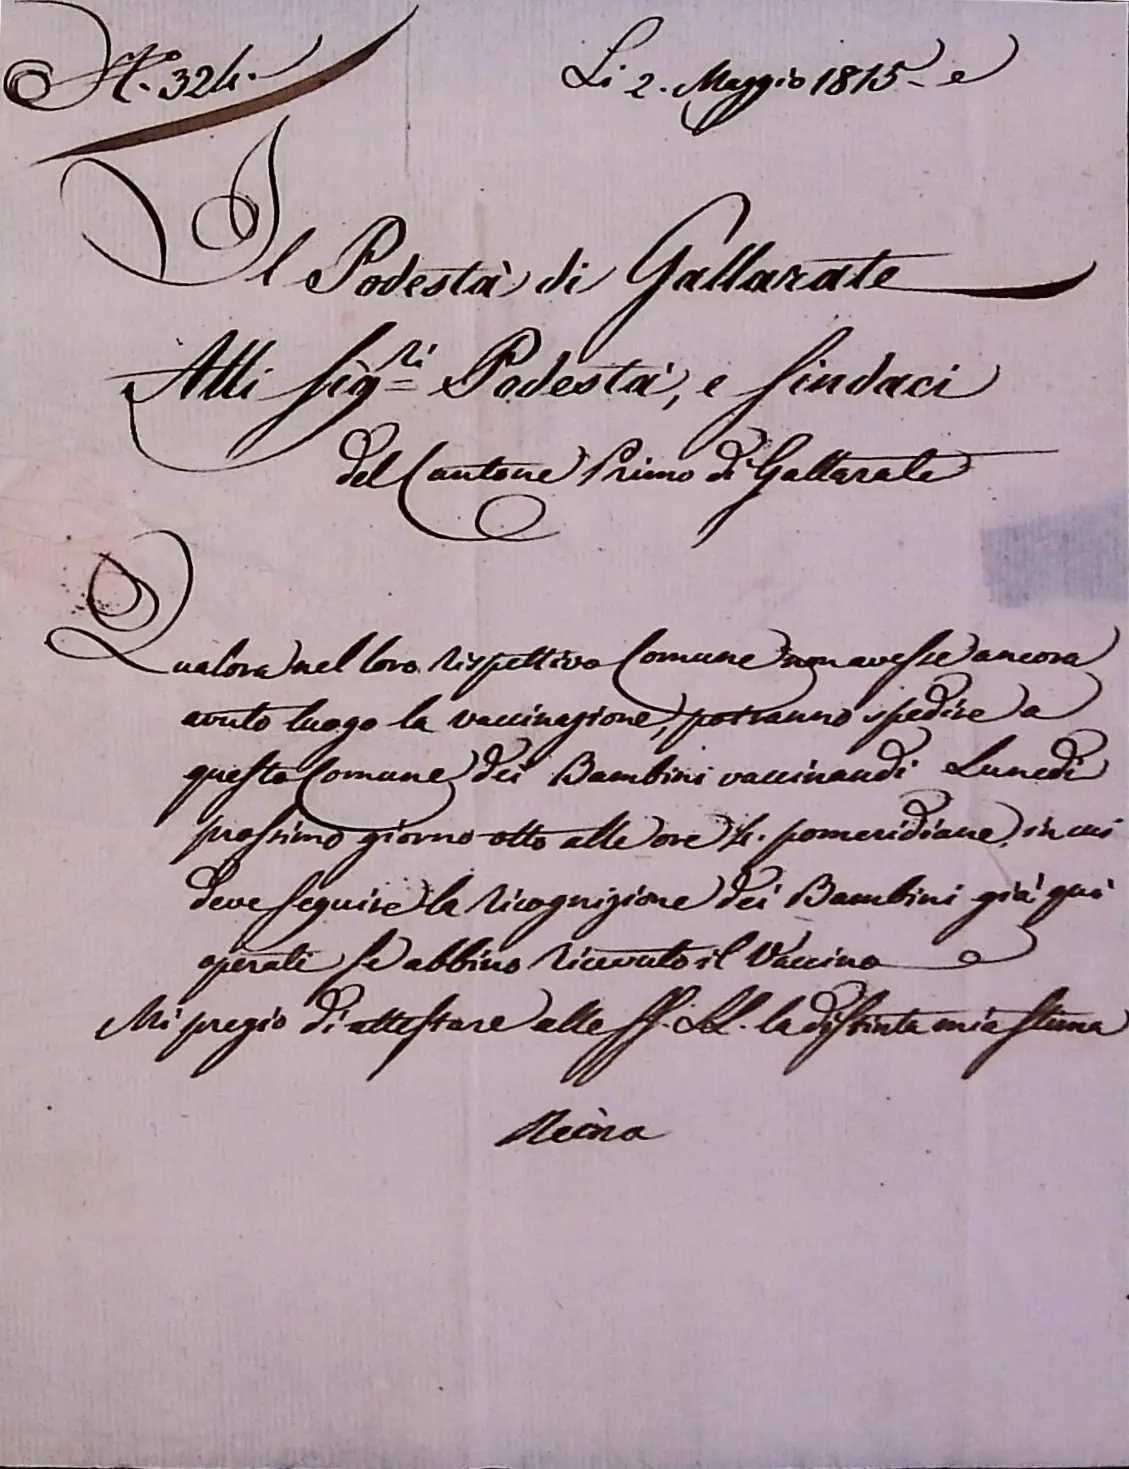 N.° 324.
Li 2. Maggio 1815
Il Podestà di Gallarate
Alli Sig.ri Podestà, e Sindaci
del Cantone Primo di Gallarate
Qualora nel loro rispettivo Comune non avesse ancora
avuto luogo la vaccinazione, potranno spedire a
questa Comune dei Bambini vaccinandi Lunedì
prossimo giorno otto alle ore 4. pomeridiane, in cui
deve seguire la ricognizione dei Bambini già quì
operati se abbino ricevuto il Vaccino
Mi pregio di attestare alle SS. LL. la distinta mia stima